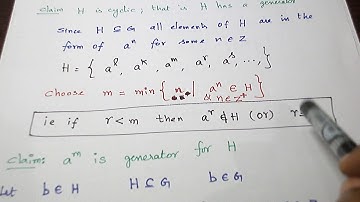 Claim H is cyclic, that is H has a generator
Since H ⊆ G all element of H are is the
form of aⁿ for some n ∈ Z
H = { a^l, a^k, a^m, a^r, a^s, ..., }
Choose m = min { n | aⁿ ∈ H
& n ∈ Z⁺ }
ie if r < m then a^r ∉ H (or) r
Claim: a^m is generator for H
Let b ∈ H H ⊆ G b ∈ G